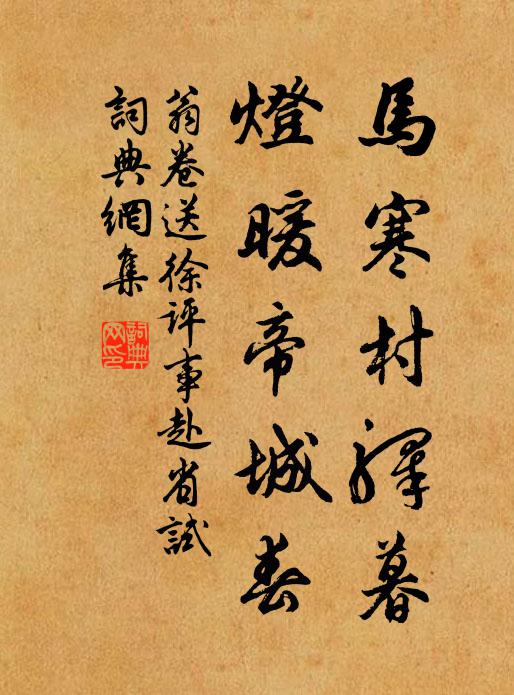 馬寒村驛暮
燈暖帝城春
翁卷送徐評事赴省試
詞典網集
詞典网印